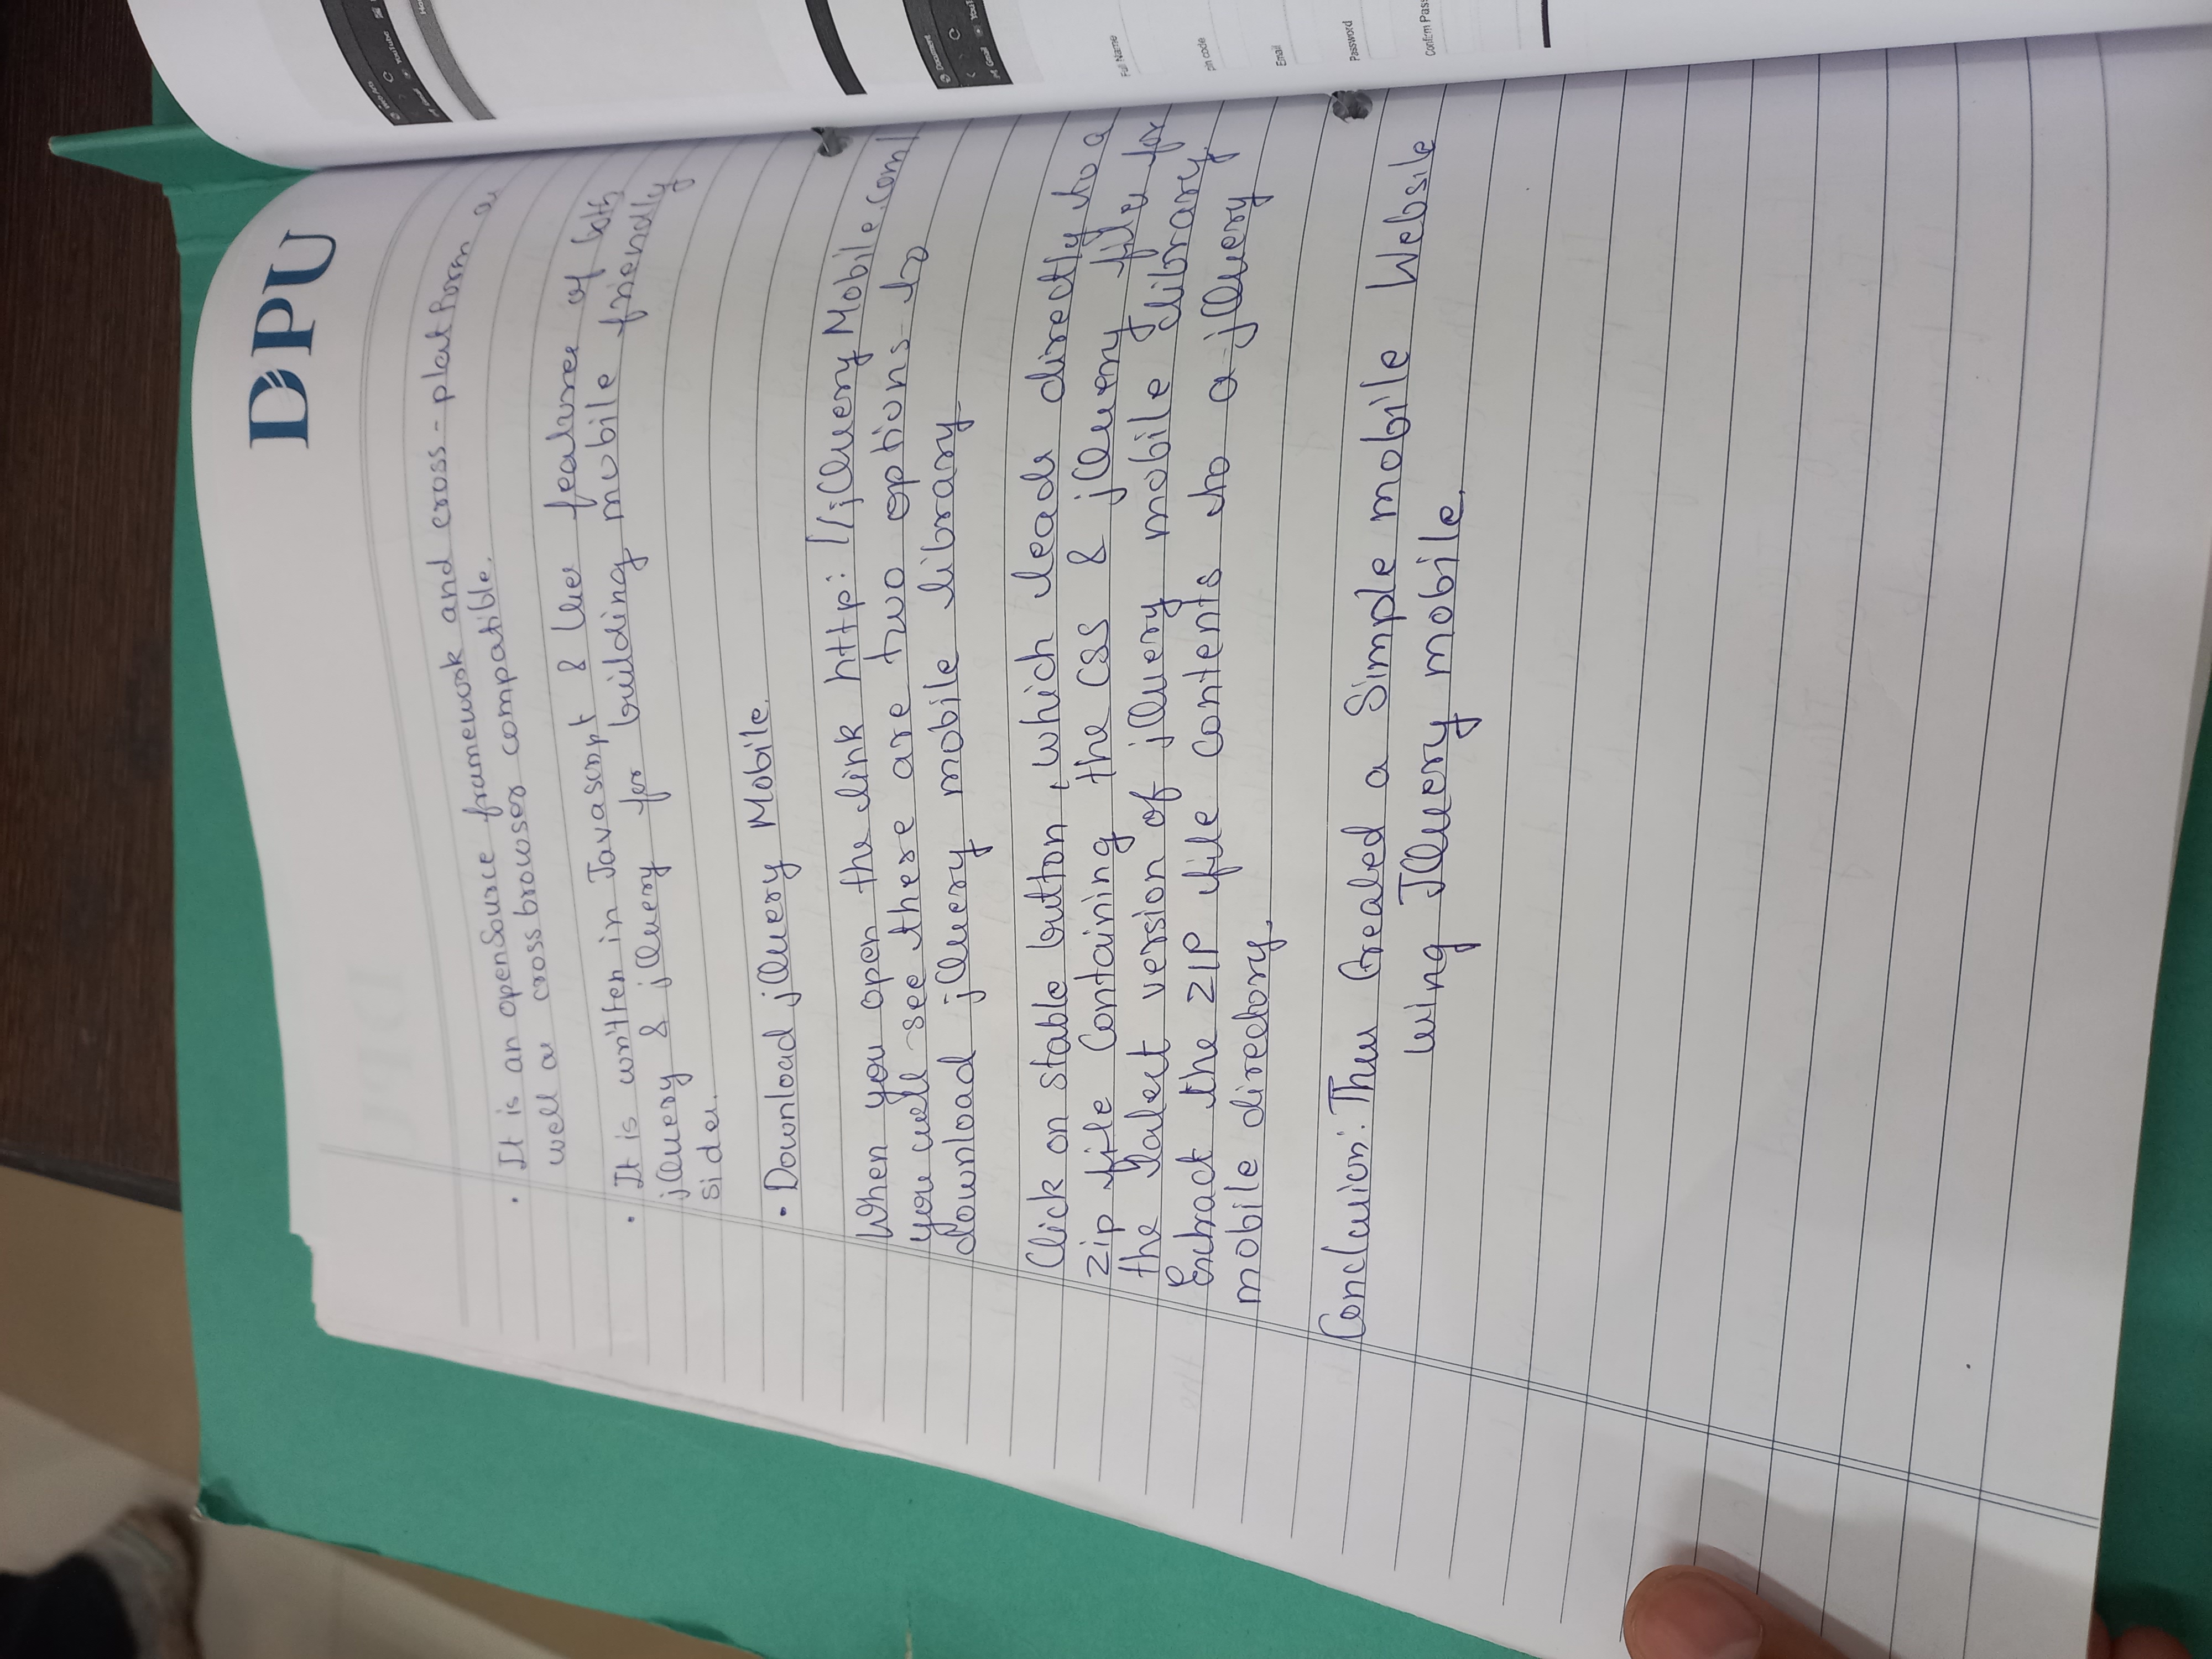 DPU
• It is an openSource framework and cross-platform as
well as cross browser compatible.
• It is written in Javascript & Uses features of both
jQuery & jQuery for building mobile friendly
sides.
• Download jQuery Mobile.
When you open the link http://jQueryMobile.com/
you will see there are two options to
download jQuery mobile library
Click on stable button, which leads directly to a
zip file Containing the CSS & jQuery files for
the latest version of jQuery mobile library.
Extract the ZIP file contents to a jQuery
mobile directory.
Conclusion: Thus Created a Simple mobile Website
using JQuery mobile.
Web Arts
Gmail
YouTube
Document
Gmail
Full Name
pin code
Email
Password
Confirm Pass